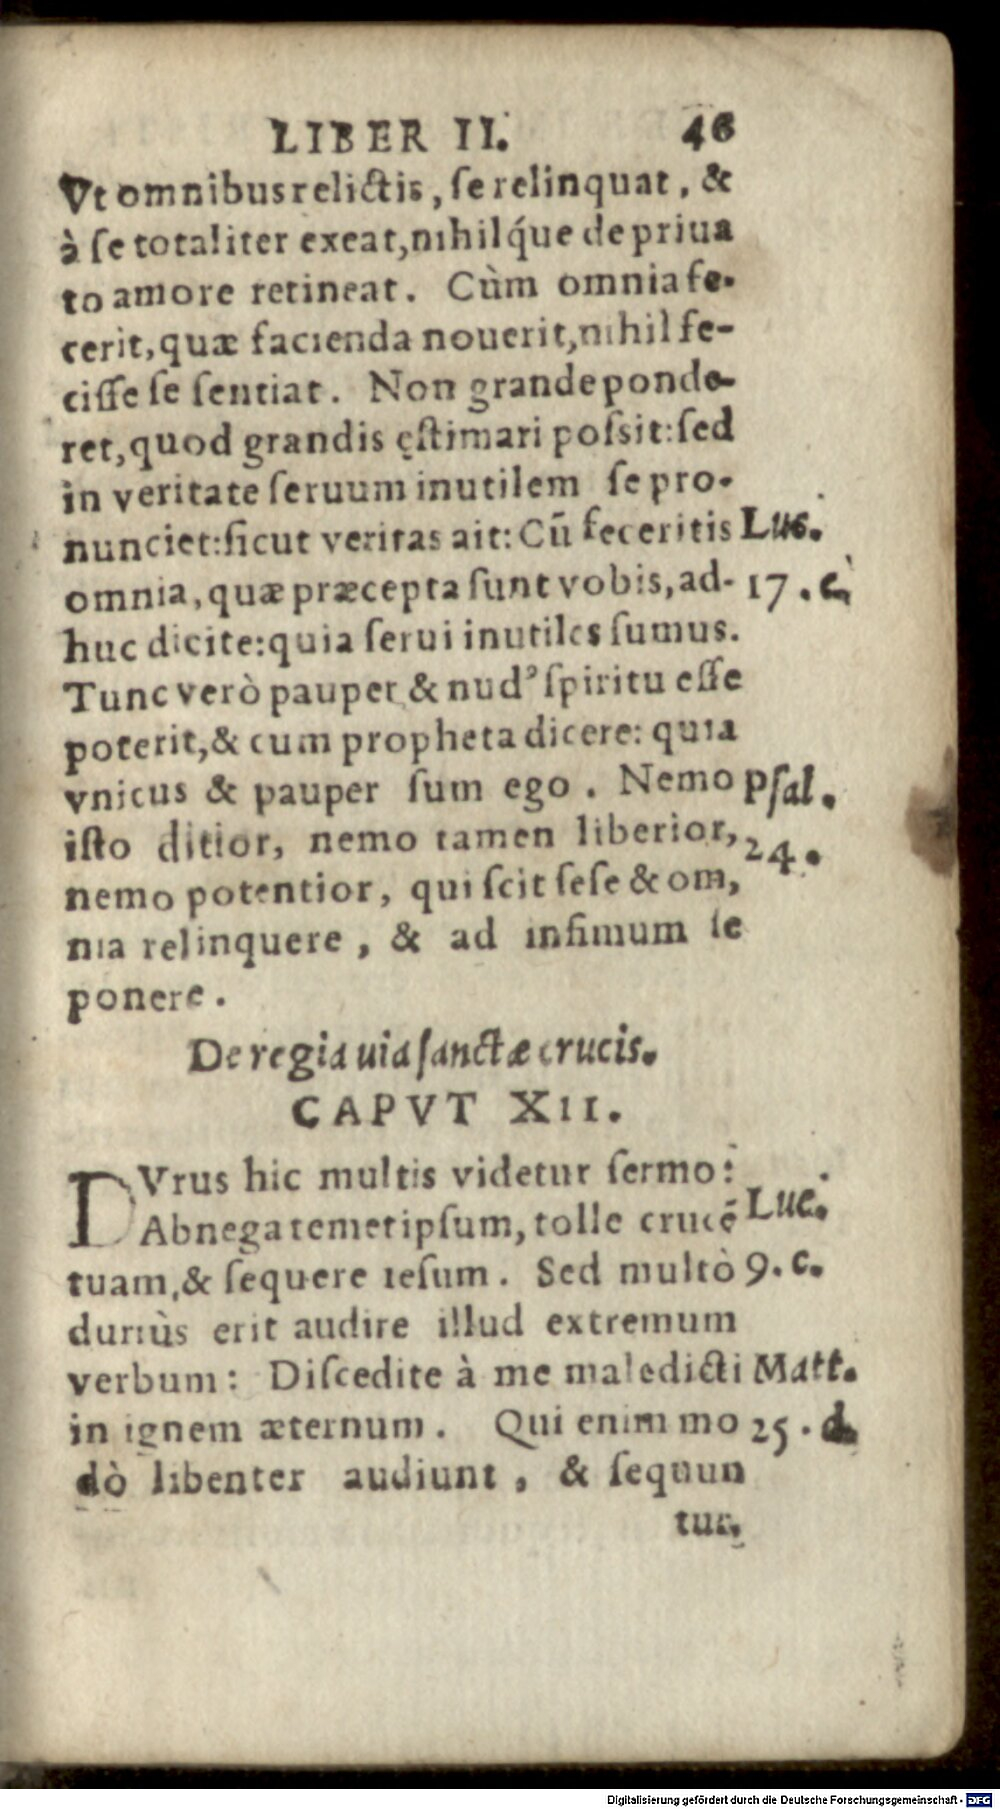 LIBER II. 46
Vt omnibus relictis, se relinquat, &
à se totaliter exeat, nihilq́ue de priua
to amore retineat. Cùm omnia fe-
cerit, quæ facienda nouerit, nihil fe-
cisse se sentiat. Non grande ponde-
ret, quod grandis ęstimari possit: sed
in veritate seruum inutilem se pro-
nunciet: sicut veritas ait: Cũ feceritis Luc.
omnia, quæ præcepta sunt vobis, ad- 17. c.
huc dicite: quia serui inutiles sumus.
Tunc verò pauper & nudꝰ spiritu esse
poterit, & cum propheta dicere: quia
vnicus & pauper sum ego. Nemo Psal.
isto ditior, nemo tamen liberior, 24.
nemo potentior, qui scit sese & om,
nia relinquere, & ad infimum se
ponere.
De regia uia sanctæ crucis.
CAPVT XII.
DVrus hic multis videtur sermo:
Abnega temetipsum, tolle crucẽ Luc.
tuam, & sequere iesum. Sed multò 9. c.
duriùs erit audire illud extremum
verbum: Discedite à me maledicti Matt.
in ignem æternum. Qui enim mo 25. d.
dò libenter audiunt, & sequun
tur.
Digitalisierung gefördert durch die Deutsche Forschungsgemeinschaft - DFG